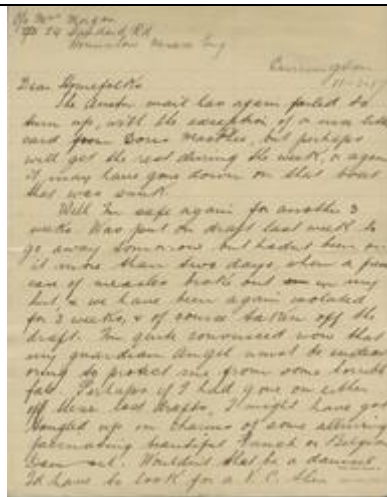 c/o Mrs Morgan
24 Rd
Hounslow Eng
Dear Homefolks
The Austn mail has again failed to
turn up, with the exception of a nice little
card from Doris but perhaps
will get the rest during the week, or again
it may have gone down on that boat
that was sunk.
Well I'm safe again for another 3
weeks. Was put on draft last week to
go away tomorrow but hadn't been on
it more than two days when a fresh
case of measles broke out in my
hut, & we have been again isolated
for 3 weeks, & of course taken off the
draft. I'm quite convinced now that
my guardian Angel must be endeav
oring to protect me from some horrible
fate. Perhaps if I had gone on either
of these last drafts, I might have got
tangled up in charms of some alluring
fascinating beautiful French or Belgian
Wouldn't that be a
I'd have to look for a V.C. then